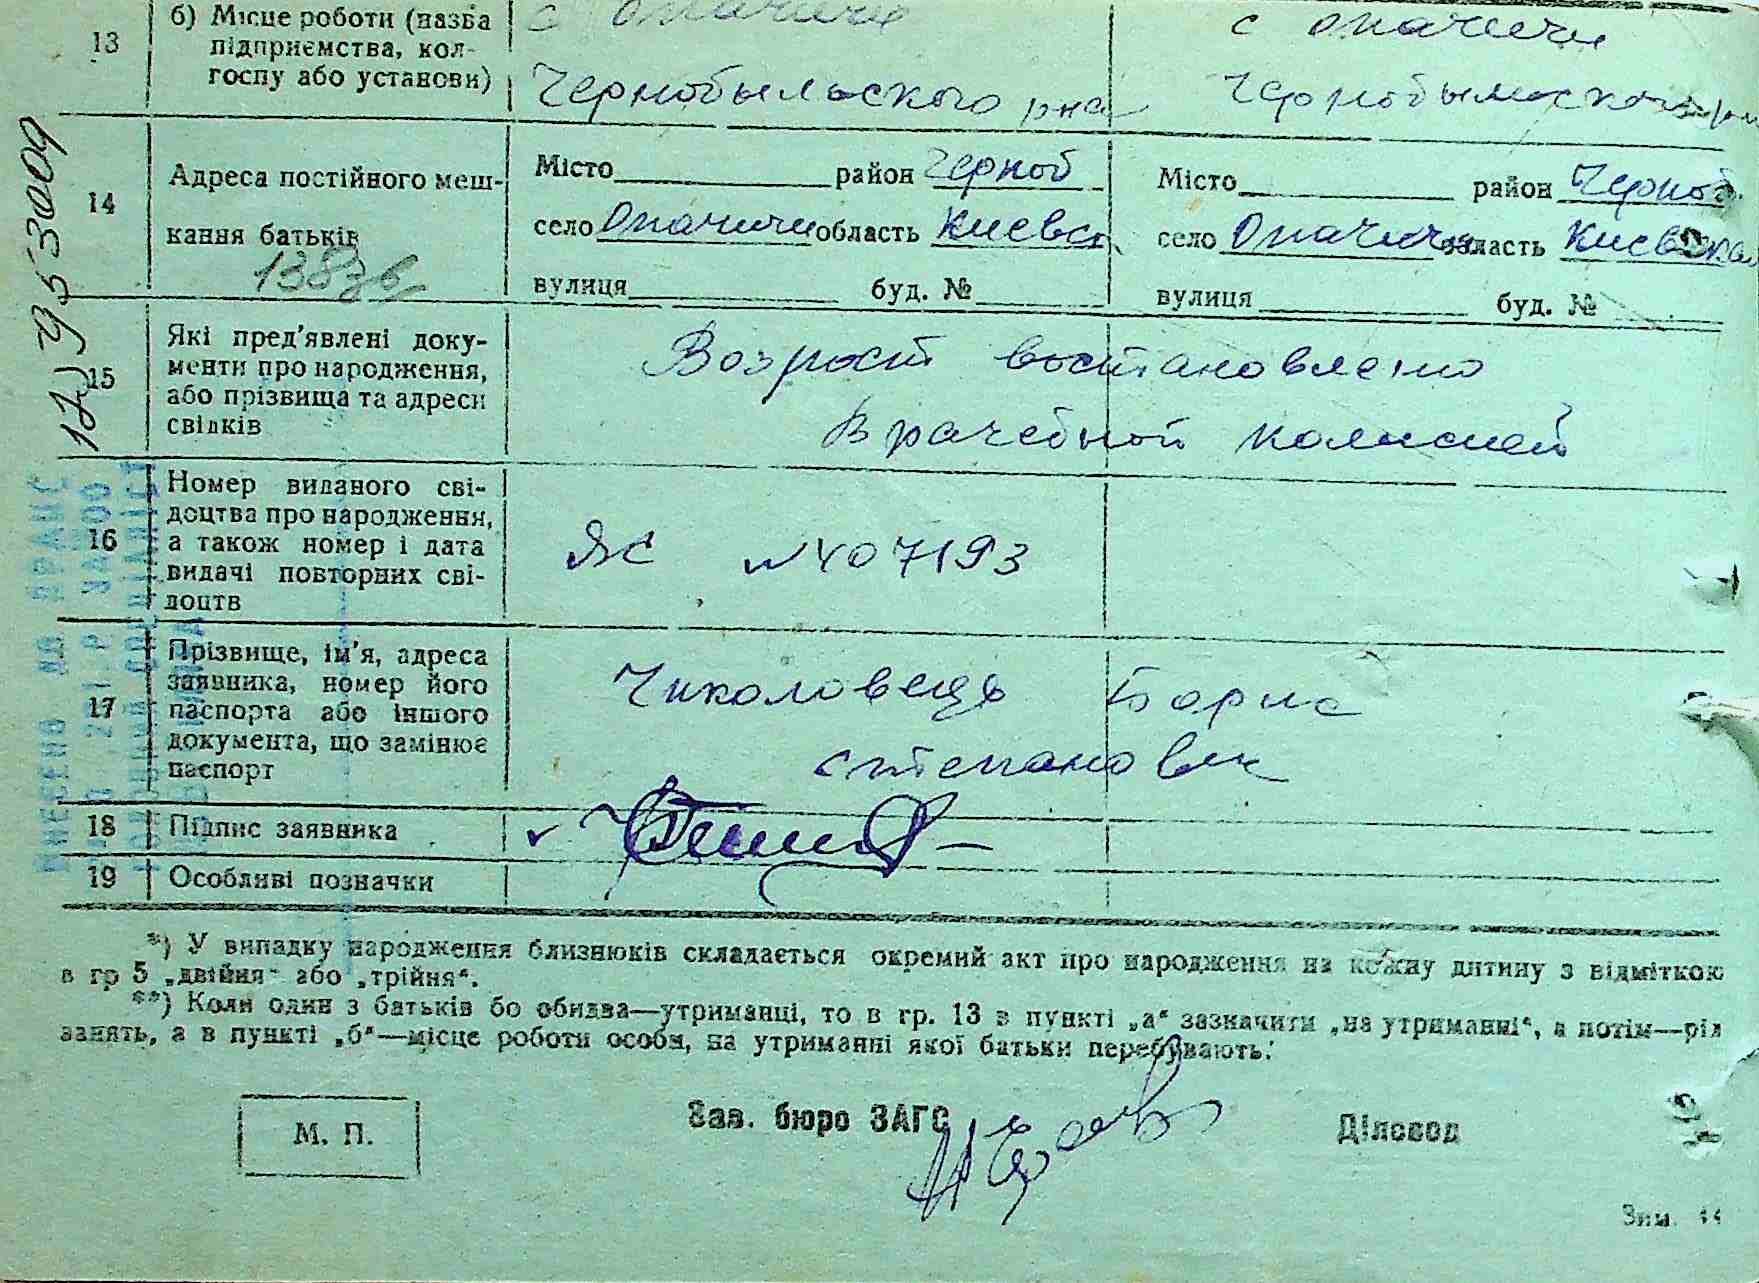 13
б) Місце роботи (назва підприємства, колгоспу або установи)
с Опачичи
Чернобыльского рна
с Опачичи
Чернобыльского
14
Адреса постійного мешкання батьків
Місто район Черноб
село Опачичи область Киевск
вулиця буд. №
Місто район Черноб
село Опачичи область Киевская
вулиця буд. №
15
Які пред'явлені документи про народження, або прізвища та адреси свідків
Возрост востановлено
Врачебной комисией
16
Номер виданого свідоцтва про народження, а також номер і дата видачі повторних свідоцтв
ЯС №407193
17
Прізвище, ім'я, адреса заявника, номер його паспорта або іншого документа, що замінює паспорт
Чиколовець Борис
степанович
18
Підпис заявника
19
Особливі позначки
*) У випадку народження близнюків складається окремий акт про народження на кожну дитину з відміткою
в гр 5 „двійня" або „трійня".
**) Коли один з батьків бо обидва—утриманці, то в гр. 13 в пункті „а" зазначити „на утриманні", а потім—рід
занять, а в пункті „б"—місце роботи особи, на утриманні якої батьки перебувають.
М. П.
Зав. бюро ЗАГС
Діловод